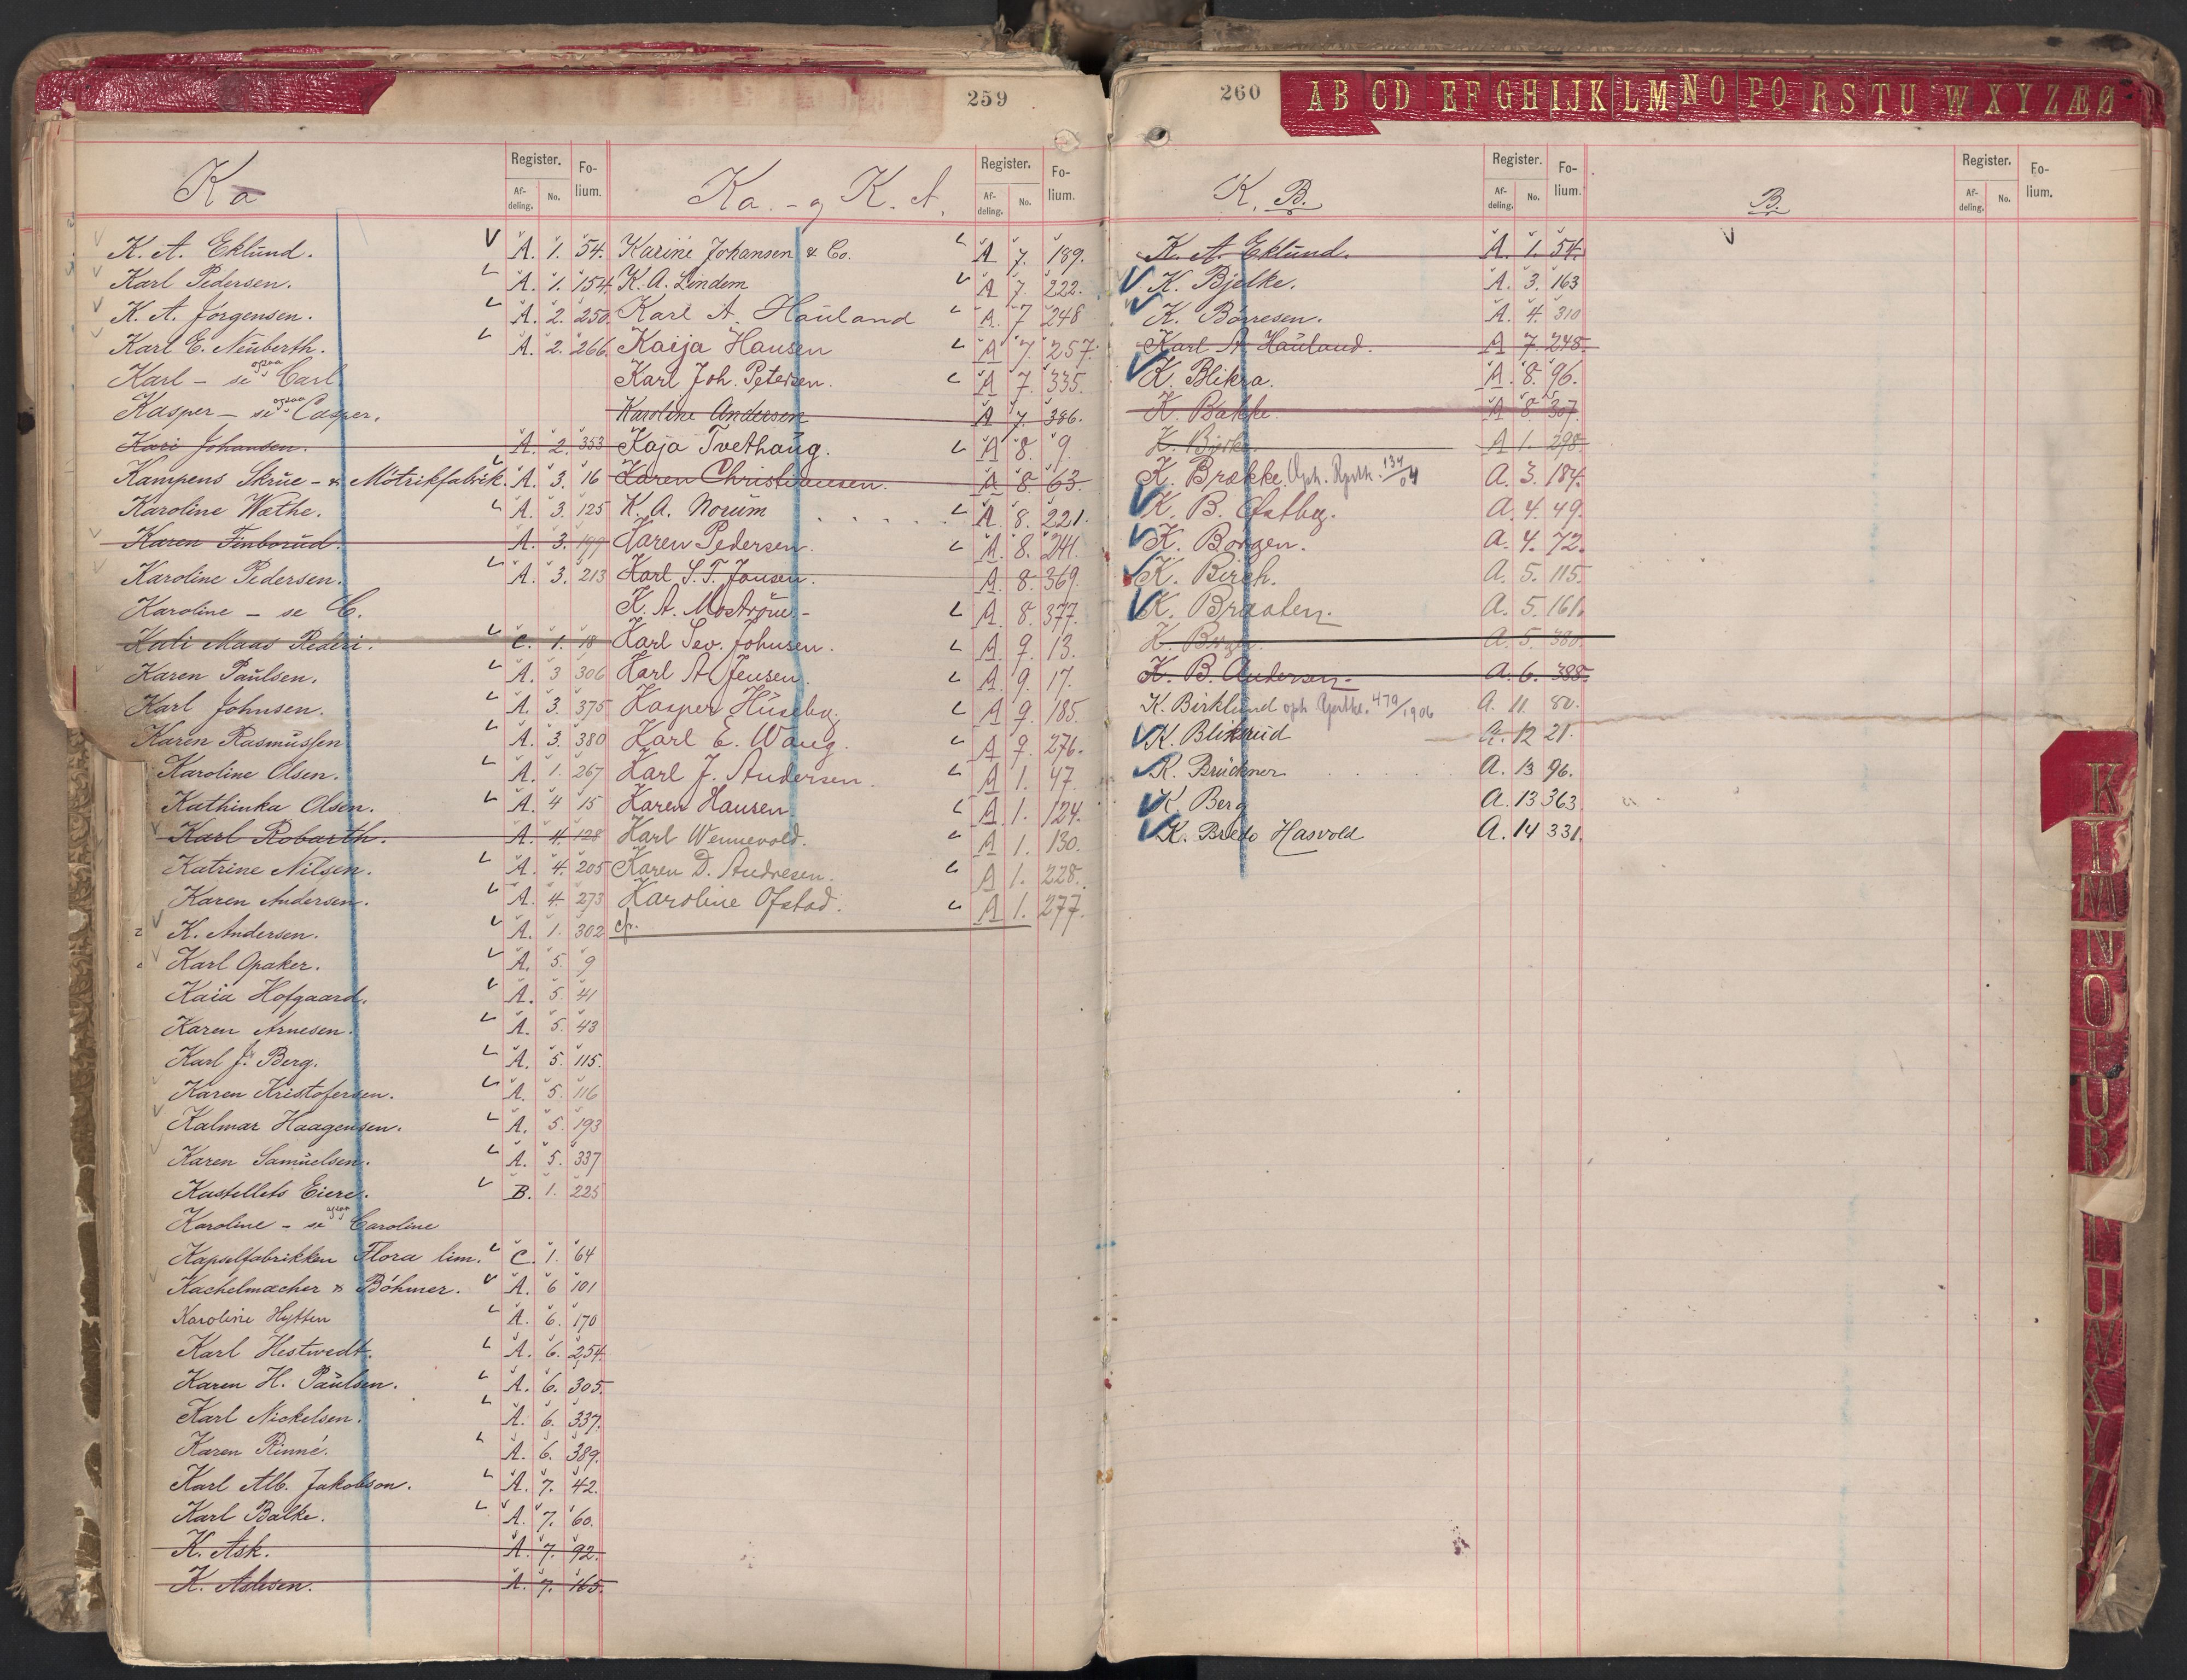 259
Ka
Register. Folium.
Afdeling. No.
K. A. Eklund. A. 1. 54.
Karl Pedersen. A. 1. 154
K. A. Jörgensen. A. 2. 250.
Karl E. Neuberth. A. 2. 266.
Karl – se ogsaa Carl
Kasper – se ogsaa Casper.
Kari Johansen. A. 2. 353
Kampens Skrue- & Mötrikfabrik. A. 3. 16
Karoline Wæthe. A. 3. 125
Karen Finborud. A. 3. 199
Karoline Pedersen. A. 3. 213
Karoline – se C.
Kati Maas Rederi. C. 1. 18
Karen Paulsen. A. 3 306
Karl Johnsen. A. 3. 375
Karen Rasmussen A. 3. 380
Karoline Olsen. A. 1. 267
Kathinka Olsen. A. 4 15
Karl Robarth. A. 4. 128
Katrine Nilsen. A. 4. 205
Karen Andersen. A. 4. 273
K. Andersen. A. 1. 302
Karl Opaker. A. 5. 9
Kaia Hofgaard. A. 5. 41
Karen Arnesen. A. 5. 43
Karl Jr. Berg. A. 5. 115.
Karen Kristofersen. A. 5. 116
Kalmar Haagensen. A. 5. 193
Karen Samuelsen. A. 5. 337
Kastellets Eiere. B. 1. 225
Karoline – se ogsaa Caroline
Kapselfabrikken Flora lim. C. 1. 64
Kachelmacher & Böhmer. A. 6 101
Karoline Hytten A. 6. 170
Karl Hestwedt. A. 6. 254.
Karen H. Paulsen. A. 6. 305.
Karl Nickelsen. A. 6. 337.
Karen Rinné. A. 6. 389.
Karl Alb. Jakobson. A. 7. 42.
Karl Balke. A. 7. 60.
K. Ask. A. 7. 92.
K. Aslesen. A. 7. 165.
Ka. – og K. A.
Register. Folium.
Afdeling. No.
Karine Johansen & Co. A 7. 189.
K. A. Lindem A 7. 222.
Karl A. Hauland A. 7 248
Kaija Hansen A 7. 257.
Karl Joh. Petersen. A 7. 335.
Karoline Andersen A 7. 386.
Kaja Tvethaug. A 8. 9.
Karen Christiansen. A 8. 63.
K. A. Norum A. 8. 221.
Karen Pedersen. A. 8. 241.
Karl S. T. Jansen. A. 8. 369.
K. A. A. 8. 377.
Karl Sev. Johnsen. A. 9. 13.
Karl A Jensen. A. 9. 17.
Kasper Huseby. A 9. 185.
Karl E. Wang. A 9. 276.
Karl J. Andersen. A 1. 47.
Karen Hansen. A. 1. 124.
Karl Wennevold. A 1. 130.
Karen D. Andresen. A 1. 228.
Karoline Ofstad. A 1. 277.
cfr.
260
AB CD EF GH IJK LM NO PQ RS TU W X Y Z Æ Ø
K. B.
Register. Folium.
Afdeling. No.
K. A. Eklund. A. 1. 54.
K. Bjelke. A. 3. 163
K. Børresen. A. 4. 310
Karl A Hauland. A 7. 248.
K. Blikra. A. 8. 96.
K. Bakke. A 8. 307.
K. A 1. 298.
K. Brække. Oph. 134/04 A. 3. 187.
K. B. Østby. A. 4. 49.
K. Borgen. A. 4. 72.
K. Birch. A. 5. 115.
K. Braaten. A. 5. 161.
K. A. 5. 380.
K. B. Andersen. A. 6. 388.
K. Birklund oph 479/1906 A. 11 80.
K. Blikrud A. 12 21.
K. Brückner A. 13 96.
K. Berg A. 13 363
K. Bredo Hasvold A. 14 331.
B.
Register. Folium.
Afdeling. No.
K
L
M
N
O
P
U
R
L
U
W
X
Y
Z